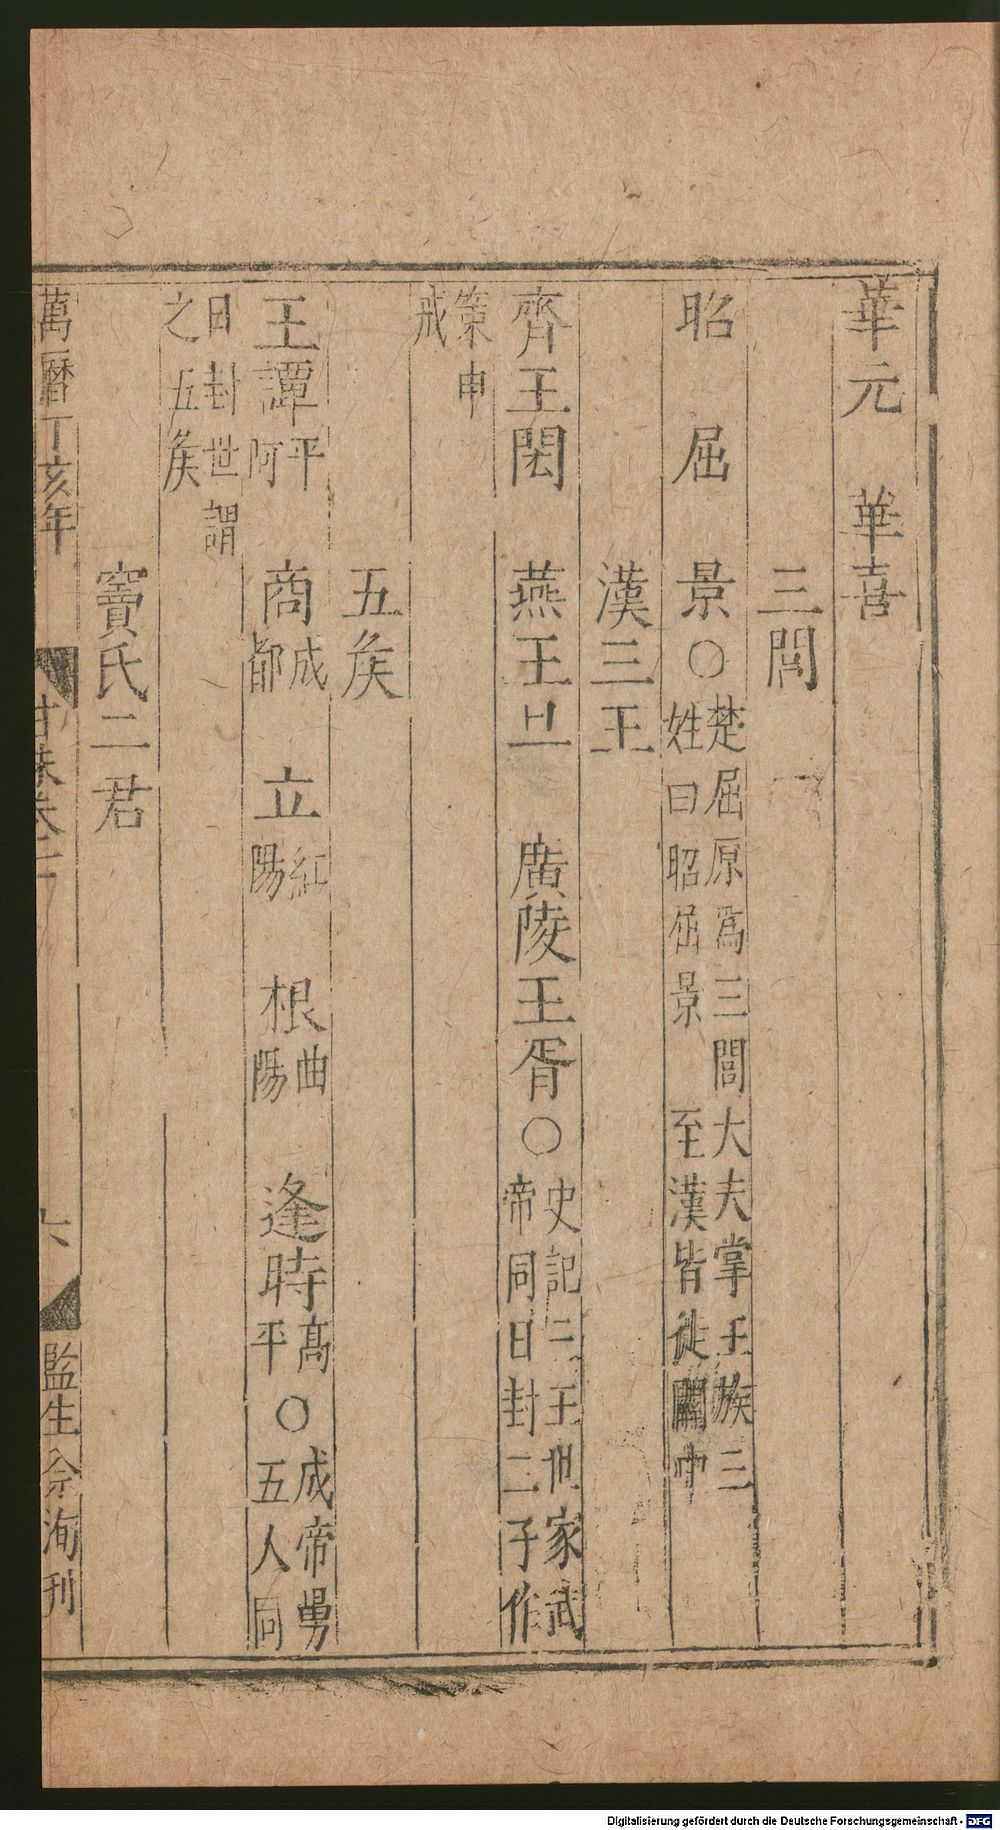 華元　華喜
三閭
昭　屈　景○楚屈原爲三閭大夫掌王族三
姓曰昭屈景　至漢皆徙關中
漢三王
齊王閎　燕王旦　廣陵王胥○史記三王世家武
帝同日封三子作
策申
戒
五矦
王譚平阿　商成都　立紅陽　根曲陽　逢時高平○成帝舅
五人同
日封世謂
之五矦
竇氏二君
萬曆丁亥年
六
監生余洵刊
Digitalisierung gefördert durch die Deutsche Forschungsgemeinschaft - DFG